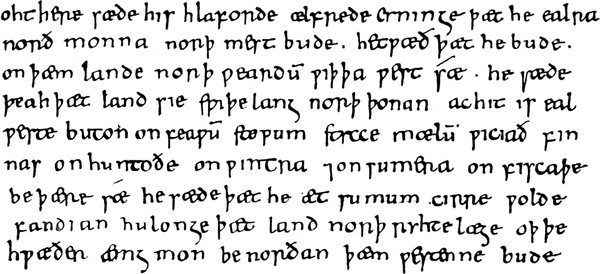 ohthere sæde his hlaforde ælfrede cyninge þæt he ealra
norð monna norþ mest bude . he cƿæð þæt he bude .
on þæm lande norþ ƿeardū ƿiþ þa ƿest sæ . he sæde
þeah þæt land sie sƿiþe lang norþ þonan ac hit is eal
ƿeste buton on feaƿū stoƿum stycce mælū ƿiciað fin
nas on huntoðe on ƿintra ⁊ on sumera on fiscaþe
be þære sæ he sæde þæt he æt sumum cirre ƿolde
fandian hu longe þæt land norþ ryhte læge oþþe
hƿæðer ænig mon be norðan þæm ƿestenne bude